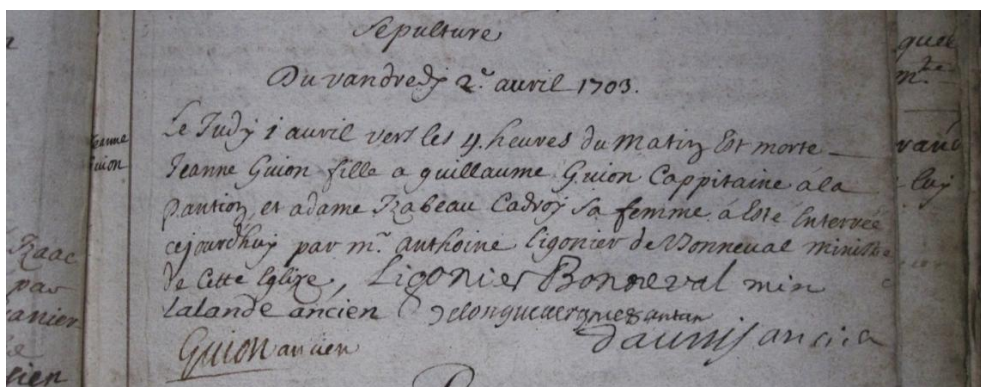 Sepulture
Du vandredy 2e. avril 1703.
Jeanne
Guion
Le Judy 1 avril vers les 4. heures du matin Est morte
Jeanne Guion fille a guillaume Guion Cappitaine á la
pantion et adame Isabeau Cadroy sa femme á Esté Enterrée
cejourdhuy par mr. anthoine Ligonier de Bonneval ministre
de Cette Eglize, Ligonier Bonneval min
Lalande ancien
Guion ancien
Isaac
par
ancien